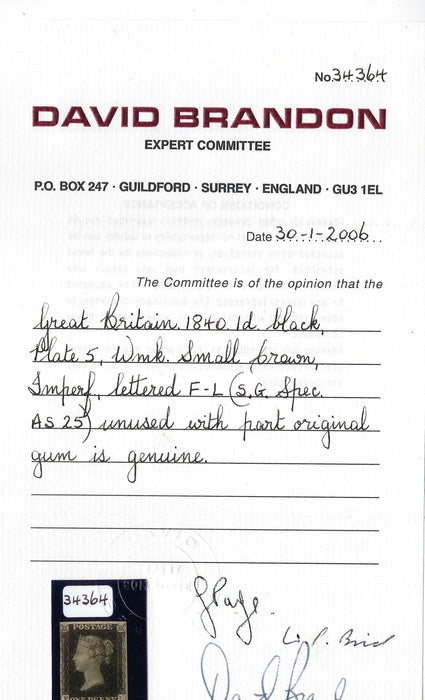 No. 34364
DAVID BRANDON
EXPERT COMMITTEE
P.O. BOX 247 · GUILDFORD · SURREY · ENGLAND · GU3 1EL
Date 30-1-2006
The Committee is of the opinion that the
Great Britain 1840 1d. black,
Plate 5, Wmk. Small crown,
Imperf, lettered F-L (S.G. Spec.
AS 25) unused with part original
gum is genuine.
34364
POSTAGE
ONE PENNY
David